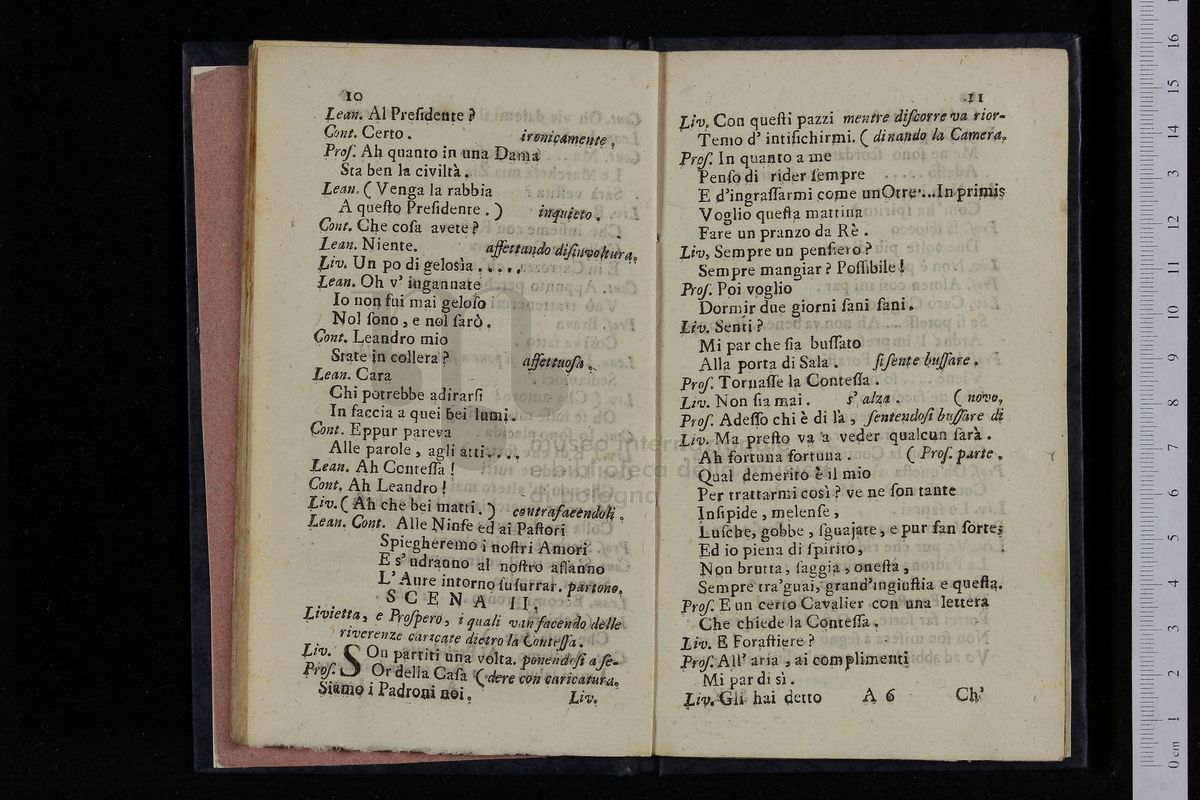 10
Lean. Al Preſidente?
Cont. Certo. ironicamente.
Proſ. Ah quanto in una Dama
Sta ben la civiltà.
Lean. (Venga la rabbia
A queſto Preſidente.) inquieto.
Cont. Che coſa avete?
Lean. Niente. affettando diſinvoltura.
Liv. Un po di gelosìa.....
Lean. Oh v' ingannate
Io non fui mai geloſo:
Nol ſono, e nol ſarò.
Cont. Leandro mio
State in collera? affettuoſa.
Lean. Cara
Chi potrebbe adirarſi
In faccia a quei bei lumi.
Cont. Eppur pareva
Alle parole, agli atti....
Lean. Ah Conteſſa!
Cont. Ah Leandro!
Liv. (Ah che bei matti.) contrafacendoli.
Lean. Cont. Alle Ninfe ed ai Paſtori
Spiegheremo i noſtri Amori
E s' udranno al noſtro affanno
L' Aure intorno ſuſurrar. partono.
SCENA II.
Livietta, e Proſpero, i quali van facendo delle
riverenze caricate dietro la Conteſſa.
Liv. SOn partiti una volta. ponendoſi a ſe-
Proſ. Or della Caſa (dere con caricatura.
Siamo i Padroni noi.
Liv.
11
Liv. Con queſti pazzi mentre diſcorre va rior-
Temo d' intiſichirmi. (dinando la Camera.
Proſ. In quanto a me
Penſo di rider ſempre
E d'ingraſſarmi come un Otre...In primis
Voglio queſta mattina
Fare un pranzo da Rè.
Liv. Sempre un penſiero?
Sempre mangiar? Poſſibile!
Proſ. Poi voglio
Dormir due giorni ſani ſani.
Liv. Senti?
Mi par che ſia buſſato
Alla porta di Sala. ſi ſente buſſare.
Proſ. Tornaſſe la Conteſſa.
Liv. Non ſia mai. s' alza. (novo.
Proſ. Adeſſo chi è di là, ſentendoſi buſſare di
Liv. Ma preſto va a veder qualcun ſarà.
Ah fortuna fortuna. (Proſ. parte.
Qual demerito è il mio
Per trattarmi così? ve ne ſon tante
Inſipide, melenſe,
Luſche, gobbe, ſguajate, e pur fan ſorte;
Ed io piena di ſpirito,
Non brutta, ſaggia, oneſta,
Sempre tra'guai, grand'ingiuſtia e queſta.
Proſ. E un certo Cavalier con una lettera
Che chiede la Conteſſa.
Liv. E Foraſtiere?
Proſ. All' aria, ai complimenti
Mi par di sì.
Liv. Gli hai detto A 6 Ch'
museo internazionale
e biblioteca della musica
di bologna
0 cm 1 2 3 4 5 6 7 8 9 10 11 12 13 14 15 16